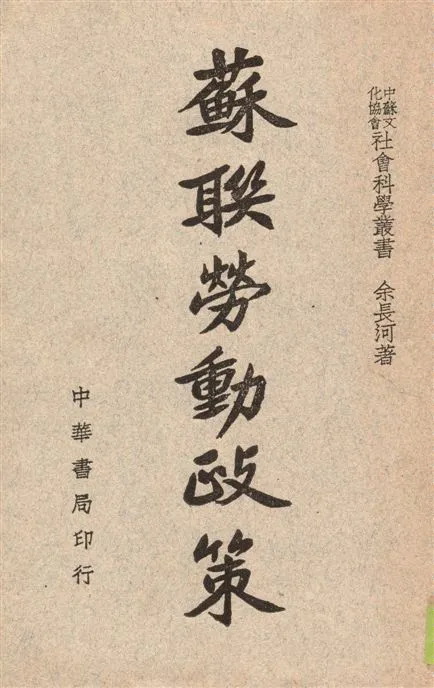 中蘇文化協會社會科學叢書 余長河著
蘇聯勞動政策
中華書局印行